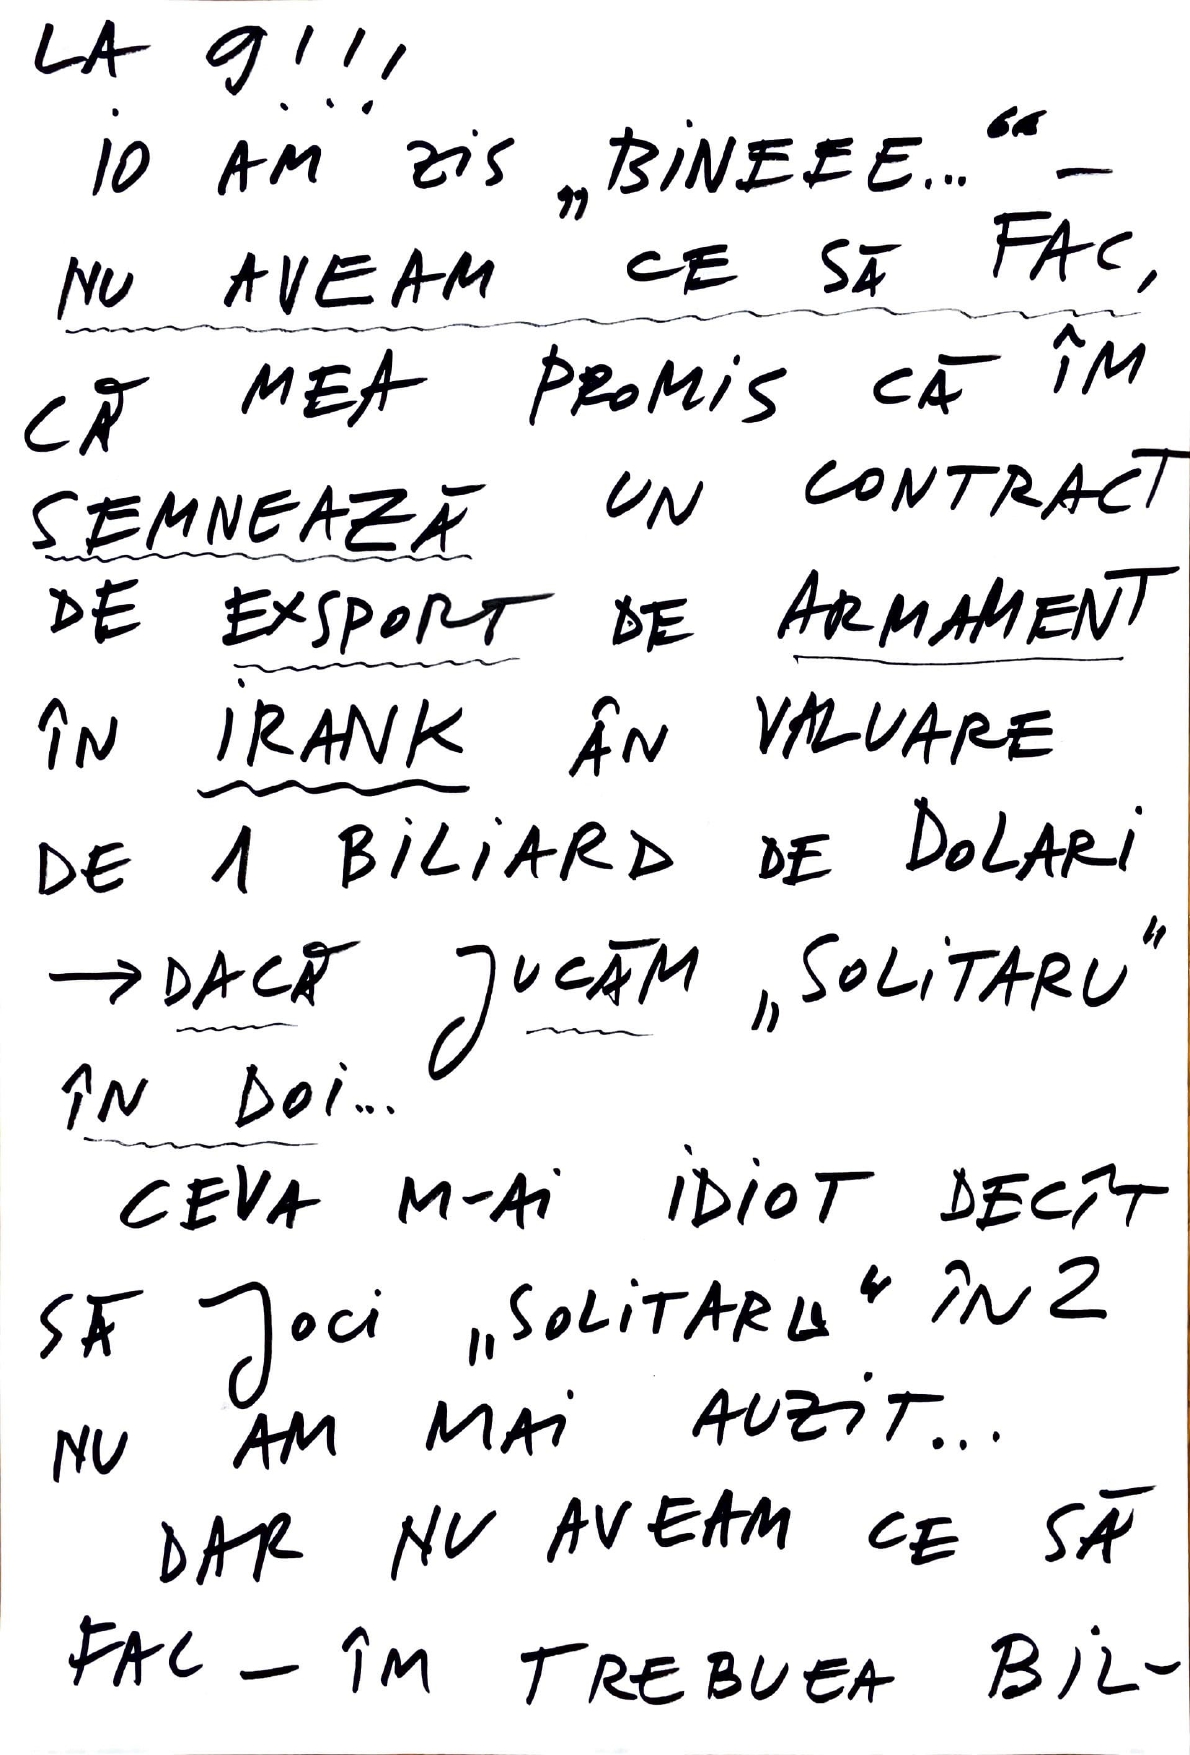 LA 9!!!
iO AM ziS „BiNEEE...“ –
NU AVEAM CE SĂ FAC,
CĂ MEA PROMiS CĂ ÎM
SEMNEAZĂ UN CONTRACT
DE EXSPORT DE ARMAMENT
ÎN iRANK ÂN VALUARE
DE 1 BiLiARD DE DOLARi
→ DACĂ JUCĂM „SOLiTARU“
ÎN DOi...
CEVA M-Ai iDiOT DECÎT
SĂ JOCi „SOLiTARU“ ÎN 2
NU AM MAi AUZiT...
DAR NU AVEAM CE SĂ
FAC – ÎM TREBUEA BiL-